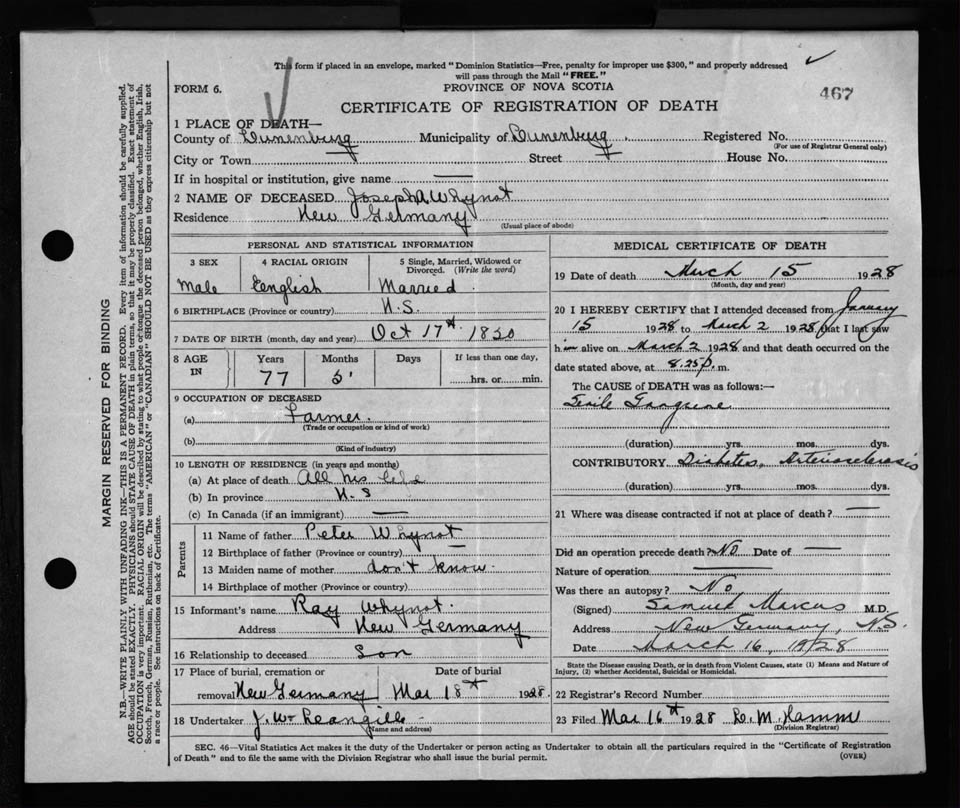 This form if placed in an envelope, marked "Dominion Statistics—Free, penalty for improper use $300," and properly addressed
will pass through the Mail "FREE."
467
FORM 6.
PROVINCE OF NOVA SCOTIA
CERTIFICATE OF REGISTRATION OF DEATH
1 PLACE OF DEATH—
County of Lunenburg Municipality of Lunenburg Registered No.
(For use of Registrar General only)
City or Town Street House No.
If in hospital or institution, give name —
2 NAME OF DECEASED Joseph A Whynot
Residence New Germany
(Usual place of abode)
PERSONAL AND STATISTICAL INFORMATION
3 SEX 4 RACIAL ORIGIN 5 Single, Married, Widowed or Divorced. (Write the word)
Male English Married
6 BIRTHPLACE (Province or country) N.S.
7 DATE OF BIRTH (month, day and year) Oct 17th 1850
8 AGE IN Years Months Days If less than one day,
77 5 hrs. or min.
9 OCCUPATION OF DECEASED
(a) Farmer.
(Trade or occupation or kind of work)
(b)
(Kind of industry)
10 LENGTH OF RESIDENCE (in years and months)
(a) At place of death All his life
(b) In province N.S
(c) In Canada (if an immigrant) —
Parents
11 Name of father Peter Whynot
12 Birthplace of father (Province or country) —
13 Maiden name of mother don't know.
14 Birthplace of mother (Province or country)
15 Informant's name Ray Whynot.
Address New Germany
16 Relationship to deceased Son
17 Place of burial, cremation or Date of burial
removal New Germany Mar 18th 1928
18 Undertaker J. W.
(Name and address)
MEDICAL CERTIFICATE OF DEATH
19 Date of death March 15 1928
(Month, day and year)
20 I HEREBY CERTIFY that I attended deceased from January
15 1928 to March 2 1928, that I last saw
him alive on March 2 1928 and that death occurred on the
date stated above, at 8.25 p. m.
The CAUSE of DEATH was as follows:—
Senile Gangrene
(duration) yrs. mos. dys.
CONTRIBUTORY Diabetes, Arteriosclerosis
(duration) yrs. mos. dys.
21 Where was disease contracted if not at place of death? —
Did an operation precede death? No Date of —
Nature of operation —
Was there an autopsy? No
(Signed) Samuel Marcus M.D.
Address New Germany, N.S.
Date March 16, 1928
State the Disease causing Death, or in death from Violent Causes, state (1) Means and Nature of
Injury, (2) whether Accidental, Suicidal or Homicidal.
22 Registrar's Record Number
23 Filed Mar 16th 1928
(Division Registrar)
SEC. 46—Vital Statistics Act makes it the duty of the Undertaker or person acting as Undertaker to obtain all the particulars required in the "Certificate of Registration
of Death" and to file the same with the Division Registrar who shall issue the burial permit.
(OVER)
MARGIN RESERVED FOR BINDING
N.B.—WRITE PLAINLY WITH UNFADING INK—THIS IS A PERMANENT RECORD. Every item of information should be carefully supplied.
AGE should be stated EXACTLY. PHYSICIANS should STATE CAUSE OF DEATH in plain terms, so that it may be properly classified. Exact statement of
OCCUPATION is very important. RACIAL ORIGIN will be described by stating to what people or tongue the deceased person belonged, whether English, Irish,
Scotch, French, German, Russian, Ruthenian, etc. The terms "AMERICAN" or "CANADIAN" SHOULD NOT BE USED as they express citizenship but not
a race or people. See instructions on back of Certificate.